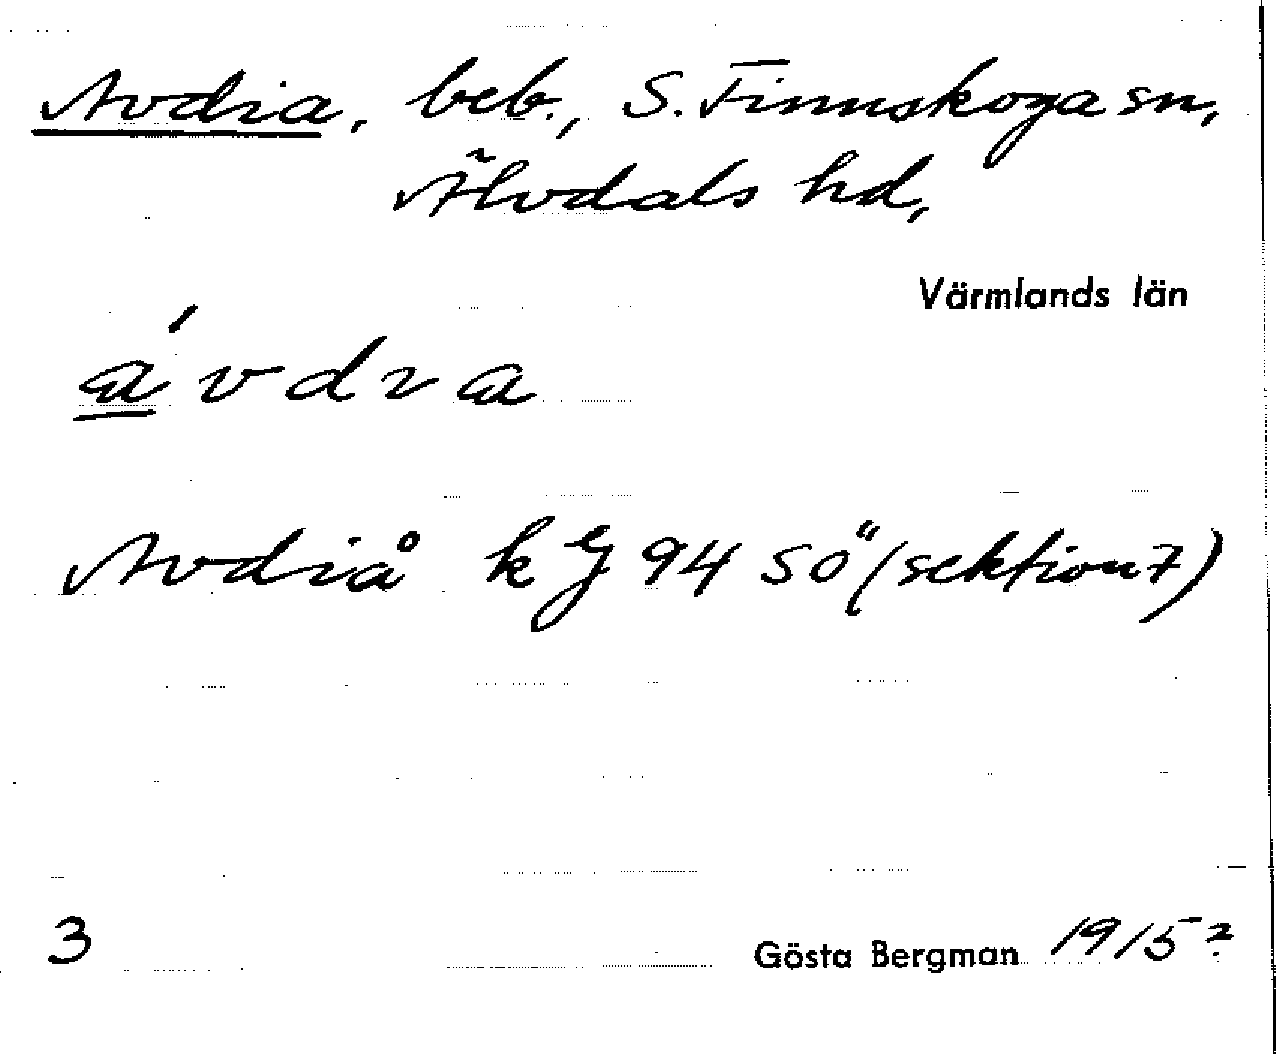 Avdia, beb., S. Finnskoga sn,
Älvdals hd,
Värmlands län
á v d ɩ a
Avdiå k bj 94 SÖ (sektion 7)
3
Gösta Bergman 1915?